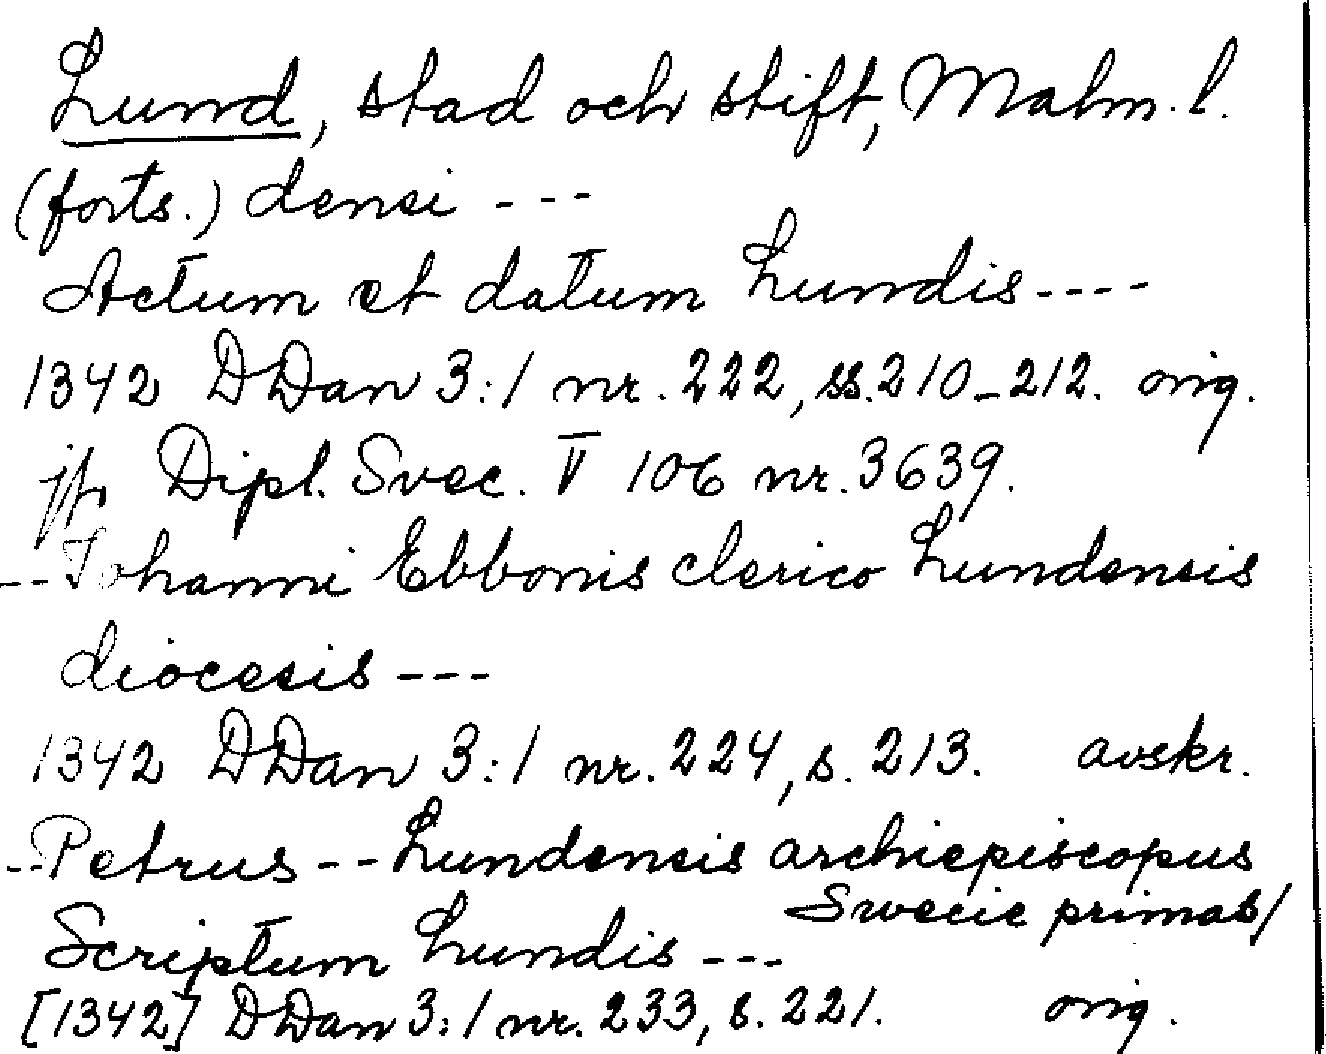 Lund, stad och stift, Malm. l.
(forts.) densi ---
Actum et datum Lundis ----
1342 DDan 3:1 nr. 222, ss. 210-212. orig.
jfr Dipl. Svec. V 106 nr. 3639.
-- Johanni Ebbonis clerico Lundensis
diocesis ---
1342 DDan 3:1 nr. 224, s. 213. avskr.
-- Petrus -- Lundensis archiepiscopus
Swecie primas/
Scriptum Lundis ---
[1342] DDan 3:1 nr. 233, s. 221. orig.